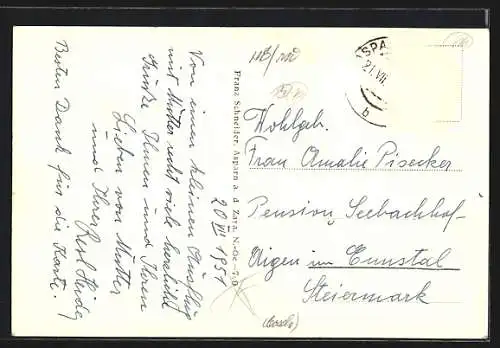 20 VII 1951
Von einem kleinen Ausflug
mit Mutter recht viele herzliche
Grüße Ihnen und Ihren
Lieben von Mutter
und Ihrer
Besten Dank für die Karte.
Franz Schneider, Asparn a. d. Zaya, N.-Oe.
SPA
21.VII
b
Wohlgeb.
Frau Amalie Pisecker
Pension Seebachhof
Aigen im Ennstal
Steiermark